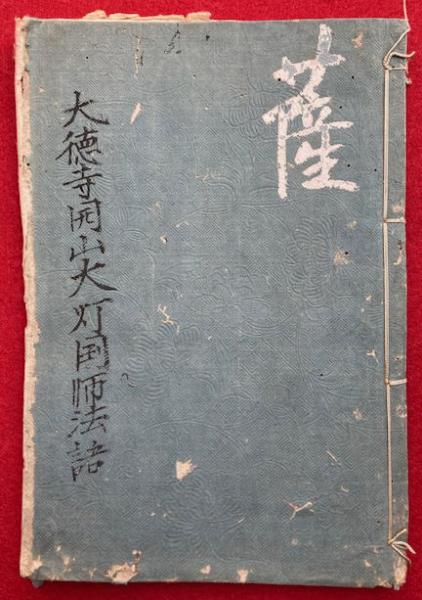 薩
大徳寺開山大灯国師法語